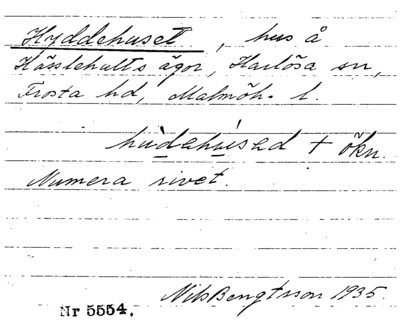 Hyddehuset, hus å
Hässlehults ägor, Harlösa sn,
Frosta hd, Malmöh. l.
hùdehùsed + ökn.
Numera rivet.
Nils Bengtsson 1935.
Nr 5554.